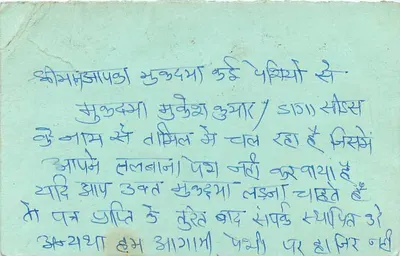 श्रीमान आपका मुकदमा कई पेशियों से
मुकदमा मुकेश कुमार / डागा सीड्स
के नाम से तामिल मे चल रहा है जिसमें
आपने तलबाना पेश नहीं करवाया है
यदि आप उक्त मुकदमा लड़ना चाहते है
तो पत्र प्राप्ति के तुरंत बाद संपर्क स्थापित करे
अन्यथा हम आगामी पेशी पर हाजिर नहीं